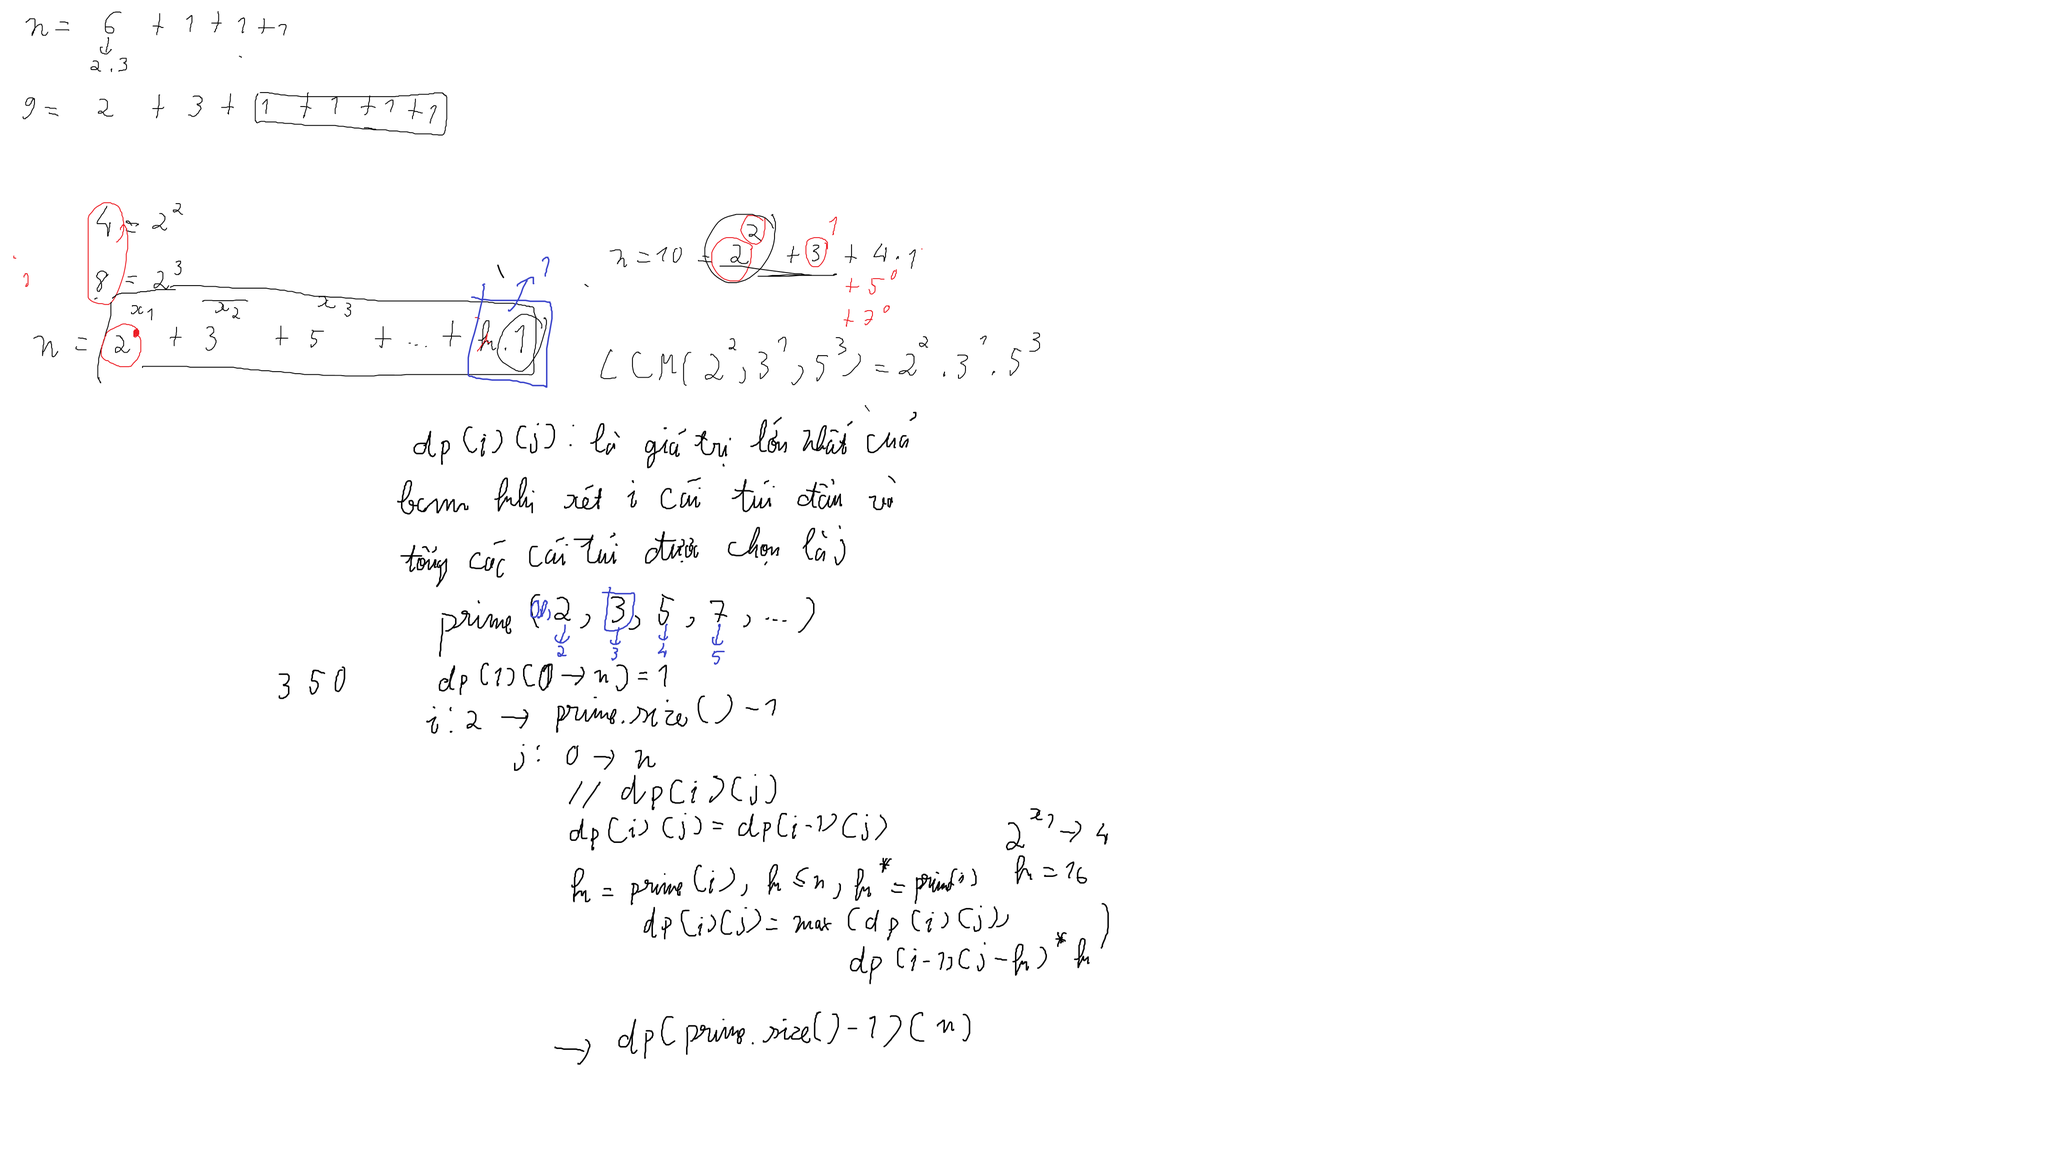 n = 6 + 1 + 1 + 1
↓
2 . 3
9 = 2 + 3 + 1 + 1 + 1 + 1
4 = 2²
8 = 2³
i
n = 2^x₁ + 3^x₂ + 5^x₃ + ... + k . 1
1
n = 10 = 2² + 3¹ + 4 . 1
+ 5⁰
+ 7⁰
LCM(2², 3¹, 5³) = 2² . 3¹ . 5³
dp(i)(j) : là giá trị lớn nhất của
bcnn khi xét i cái túi đầu và
tổng các cái túi được chọn là j
prime (, 2, 3, 5, 7, ...)
↓ ↓ ↓ ↓
2 3 4 5
350
dp(1)(0 → n) = 1
i : 2 → prime.size() - 1
j : 0 → n
// dp(i)(j)
dp(i)(j) = dp(i-1)(j)
2^x₁ → 4
k = prime(i), k ≤ n, k *= prime(i)
k = 16
dp(i)(j) = max (dp(i)(j),
dp(i-1)(j-k) * k)
→ dp(prime.size() - 1)(n)